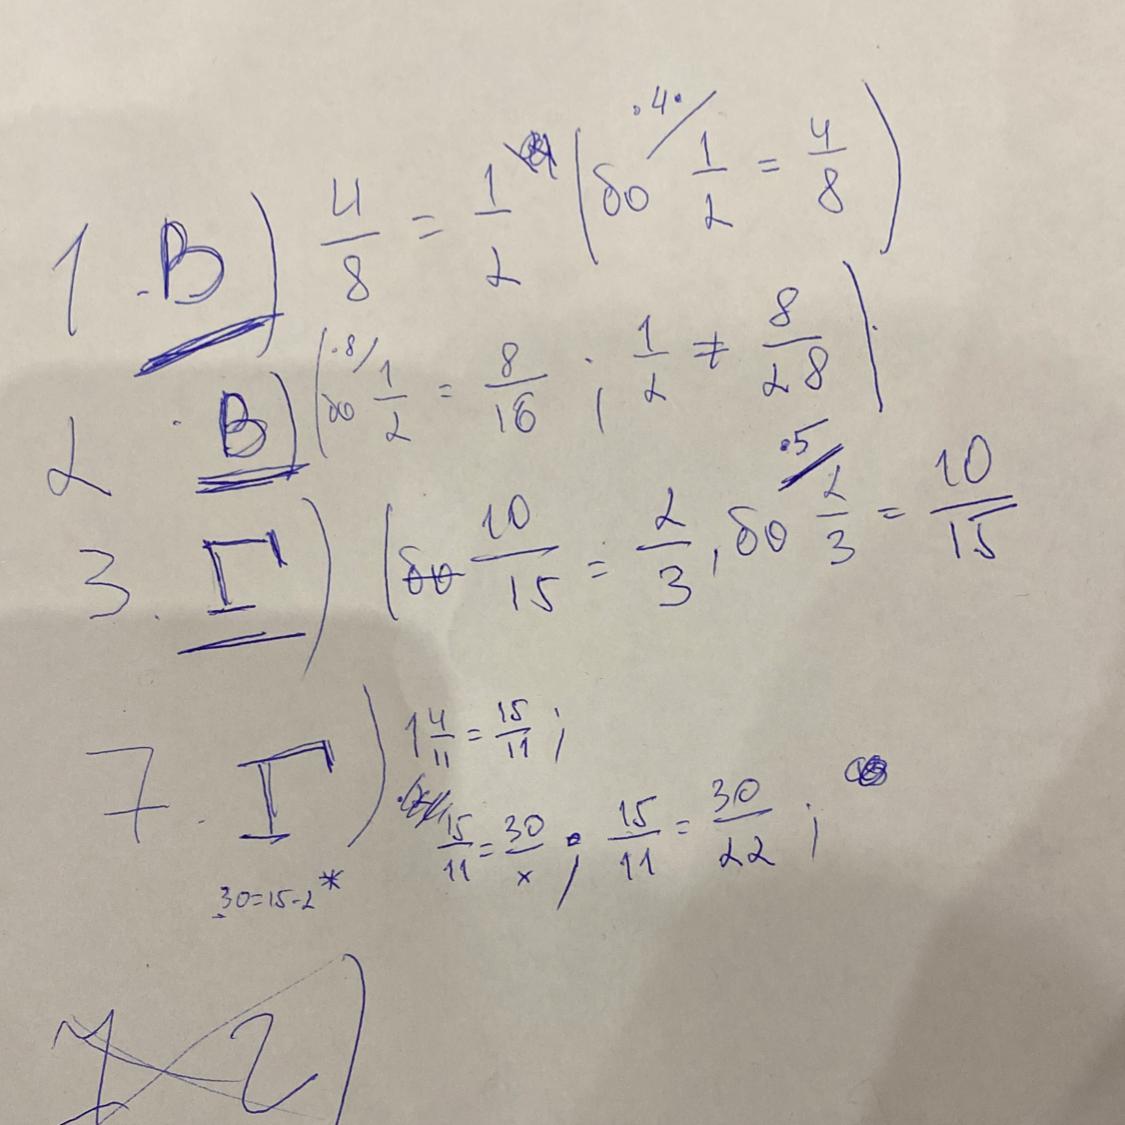 1. В) 4/8 = 1/2 (бо ·4/ 1/2 = 4/8)
2. В) (бо ·8/ 1/2 = 8/16 ; 1/2 ≠ 8/28)
3. Г) (бо 10/15 = 2/3, бо ·5/ 2/3 = 10/15
7. Г) 1 4/11 = 15/11 ;
15/11 = 30/x ; 15/11 = 30/22 ;
30=15·2*